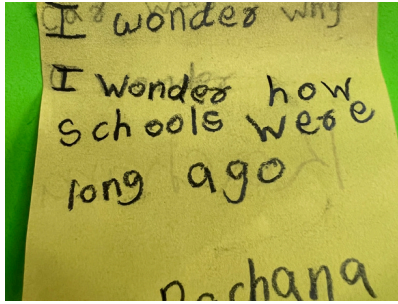 I wonder why
I wonder how
schools were
long ago
Rachana